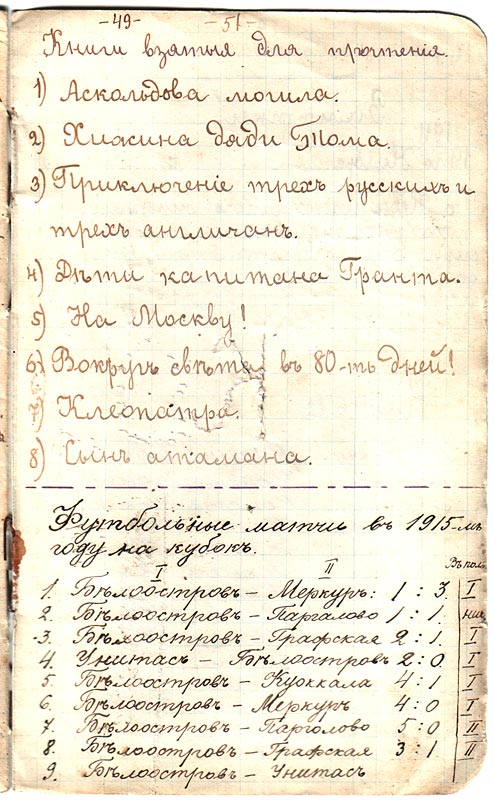 -49- -51-
Книги взятыя для прочтенія.
1) Аскольдова могила.
2) Хижина дяди Тома.
3) Приключеніе трехъ русскихъ и
трехъ англичанъ.
4) Дѣти капитана Гранта.
5) На Москву!
6) Вокругъ свѣта въ 80-ть дней!
7) Клеопатра.
8) Сынъ атамана.
Футбольные матчи въ 1915-мъ
году на кубокъ.
I II Въ пол.
1. Бѣлоостровъ - Меркуръ: 1 : 3. I
2. Бѣлоостровъ - Паргалово 1 : 1. нич.
3. Бѣлоостровъ - Графская 2 : 1 I
4. Унитасъ - Бѣлоостровъ 2 : 0. I
5. Бѣлоостровъ - Куоккала 4 : 1 I
6. Бѣлоостровъ - Меркуръ 4 : 0 I
7. Бѣлоостровъ - Парголово 5 : 0 II
8. Бѣлоостровъ - Графская 3 : 1. II
9. Бѣлоостровъ - Унитасъ